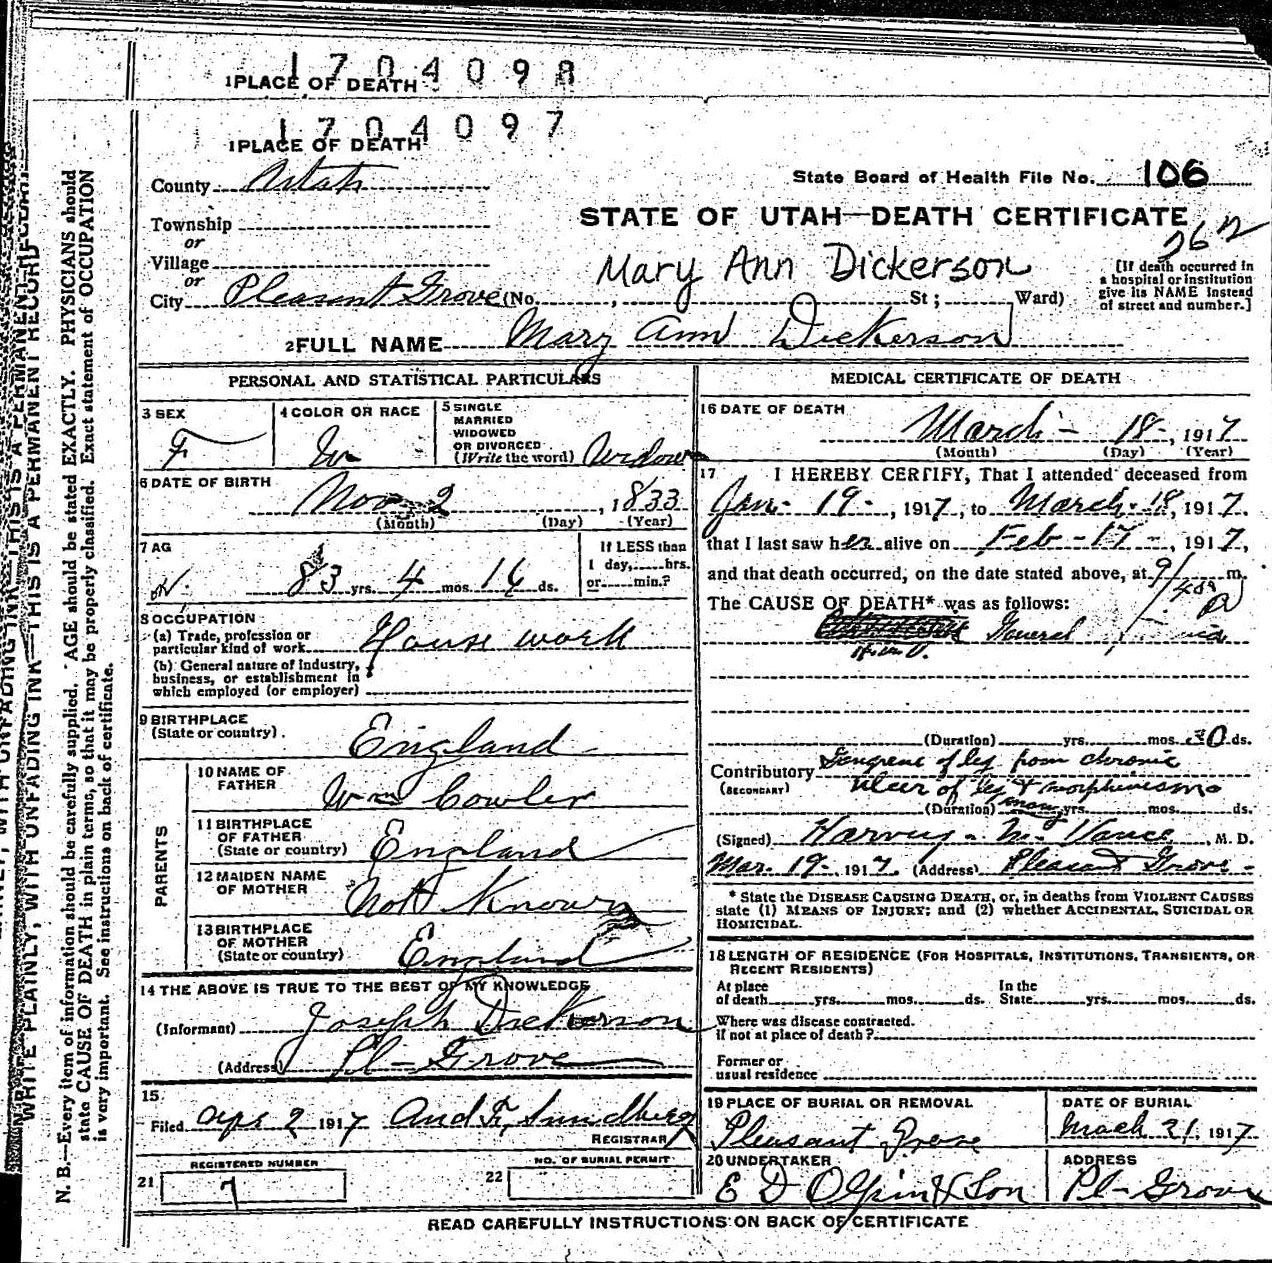 1704098
1 PLACE OF DEATH
1704097
1 PLACE OF DEATH
County Utah
State Board of Health File No. 106
Township
or
STATE OF UTAH—DEATH CERTIFICATE
262
Village
or
Mary Ann Dickerson
City Pleasant Grove (No. , St ; Ward)
[If death occurred in
a hospital or institution
give its NAME instead
of street and number.]
2 FULL NAME Mary Ann Dickerson
PERSONAL AND STATISTICAL PARTICULARS
3 SEX
F
4 COLOR OR RACE
W
5 SINGLE
MARRIED
WIDOWED
OR DIVORCED
(Write the word) Widow
6 DATE OF BIRTH
Nov 2, 1833
(Month) (Day) (Year)
7 AG
83 yrs. 4 mos. 16 ds.
If LESS than
1 day, hrs.
or min.?
8 OCCUPATION
(a) Trade, profession or
particular kind of work House work
(b) General nature of industry,
business, or establishment in
which employed (or employer)
9 BIRTHPLACE
(State or country) England
PARENTS
10 NAME OF
FATHER Wm Cowler
11 BIRTHPLACE
OF FATHER
(State or country) England
12 MAIDEN NAME
OF MOTHER Not Known
13 BIRTHPLACE
OF MOTHER
(State or country) England
14 THE ABOVE IS TRUE TO THE BEST OF MY KNOWLEDGE
(Informant) Joseph Dickerson
(Address) Pl-Grove
15
Filed Apr 2 1917 And F. Sundberg
REGISTRAR
REGISTERED NUMBER
21 7
NO. OF BURIAL PERMIT
22
MEDICAL CERTIFICATE OF DEATH
16 DATE OF DEATH
March - 18-, 1917
(Month) (Day) (Year)
17 I HEREBY CERTIFY, That I attended deceased from
Jan. 19-, 1917, to March-18, 1917.
that I last saw her alive on Feb-17-, 1917,
and that death occurred, on the date stated above, at 9/40 P m.
The CAUSE OF DEATH* was as follows:
General
(Duration) yrs. mos. 30 ds.
Contributory Gangrene of leg from chronic
(SECONDARY) Ulcer of leg & morphinism
(Duration) many yrs. mos. ds.
(Signed) Harvey - M. Vance, M. D.
Mar. 19-, 1917. (Address) Pleasant Grove -
* State the DISEASE CAUSING DEATH, or, in deaths from VIOLENT CAUSES
state (1) MEANS OF INJURY; and (2) whether ACCIDENTAL, SUICIDAL OR
HOMICIDAL.
18 LENGTH OF RESIDENCE (FOR HOSPITALS, INSTITUTIONS, TRANSIENTS, OR
RECENT RESIDENTS)
At place
of death yrs. mos. ds.
In the
State yrs. mos. ds.
Where was disease contracted.
if not at place of death?
Former or
usual residence
19 PLACE OF BURIAL OR REMOVAL
Pleasant Grove
DATE OF BURIAL
Mach 21 1917
20 UNDERTAKER
E D Olpin & Son
ADDRESS
Pl-Grove
READ CAREFULLY INSTRUCTIONS ON BACK OF CERTIFICATE
WRITE PLAINLY, WITH UNFADING INK—THIS IS A PERMANENT RECORD
N. B.—Every item of information should be carefully supplied. AGE should be stated EXACTLY. PHYSICIANS should
state CAUSE OF DEATH in plain terms, so that it may be properly classified. Exact statement of OCCUPATION
is very important. See instructions on back of certificate.